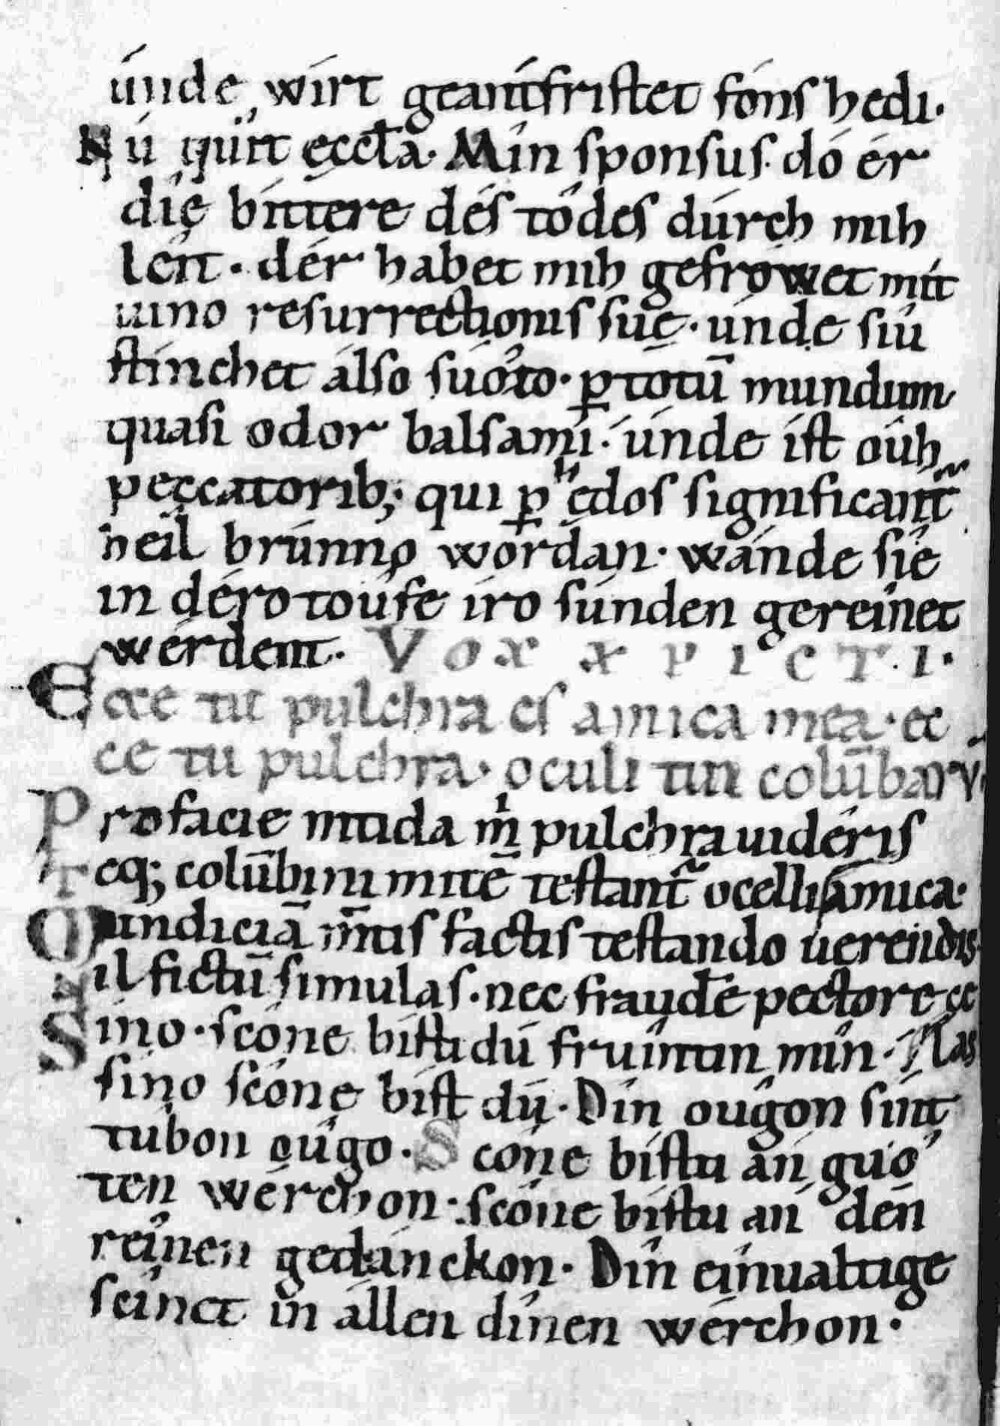 únde wírt geantfristet fóns hędi.
Nú quít ęccl̄a. Mín sponsus. dó ér
dię bíttere dés tôdes dúrch mih
léit. dér habet mih gefrówet mít
uino resurrectionis suę. únde siu
stínchet álso suózo. ꝑ totū mundum
quasi odor balsami. únde ist oûh
pęccatorib; qui ꝑ hędos significant᷑
heil brúnno wórdan. wánde síe
in déro toúfe íro súnden gereínet
wérdent. VOX XPICTI.
Ecce tu pulchra es amica mea. ec
ce tu pulchra. oculi tui colūbarū
Pro facie munda mͥ pulchra uidéris
Teq; colūbini mitē testant᷑ ocelli amica.
Mundiciā mentis factis testando uerendis
Nil fictū simulas. nec fraudē pectore cę
Síno. scóne bístu dú frúintin mín. Nas
síno scóne bíst dú. Dín oúgon sínt
túbon oúgo. Scóne bístu án guó
ten wérchon. scóne bístu an dén
reínen gedánckon. Dín eínualtige
scínet ín állen dínen wérchon.